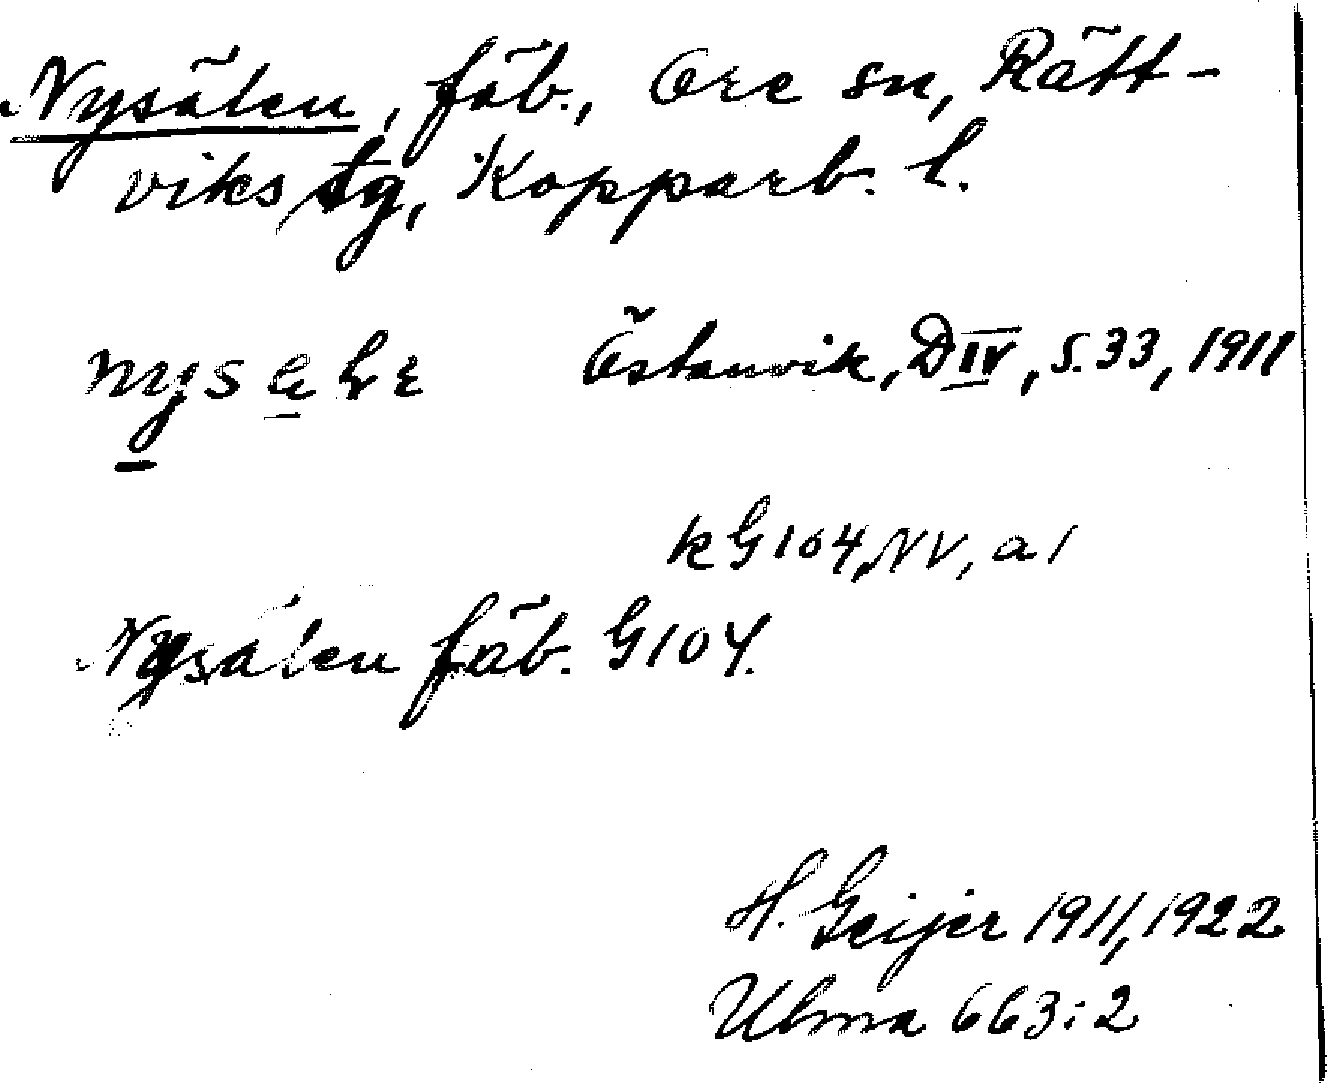 Nysälen, fäb., Ore sn, Rätt-
viks tg, Kopparb. l.
Östanvik, D IV, s. 33, 1911
k G 104, NV, a 1
Nysälen fäb. G 104.
H. Geijer 1911, 1922
Ulma 663:2